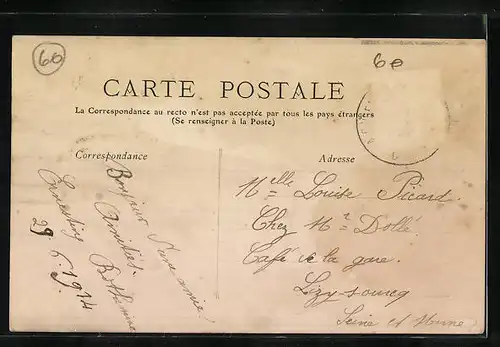 60
6e
CARTE POSTALE
La Correspondance au recto n'est pas acceptée par tous les pays étrangers
(Se renseigner à la Poste)
Correspondance
Bonjour d'une amie!
Amitiés
29.6.1914
Adresse
Melle Louise Picard.
Chez Mr Dollé.
Café de la gare.
Lizy-sourcq
Seine et Marne